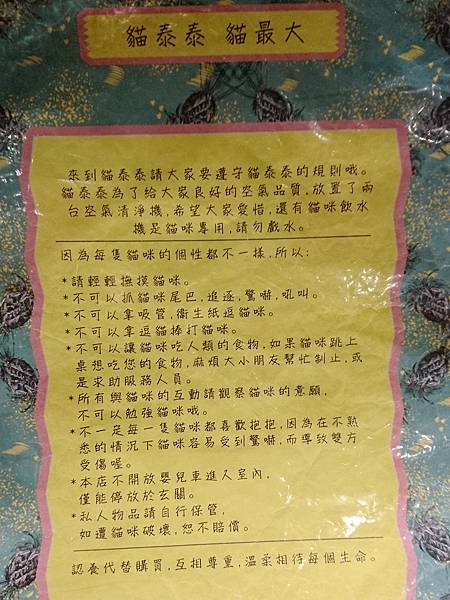 貓泰泰 貓最大
來到貓泰泰請大家要遵守貓泰泰的規則哦。
貓泰泰為了給大家良好的空氣品質,放置了兩
台空氣清淨機,希望大家愛惜,還有貓咪飲水
機是貓咪專用,請勿戲水。
因為每隻貓咪的個性都不一樣,所以:
*請輕輕撫摸貓咪。
*不可以抓貓咪尾巴,追逐,驚嚇,吼叫。
*不可以拿吸管,衛生紙逗貓咪。
*不可以拿逗貓棒打貓咪。
*不可以讓貓咪吃人類的食物,如果貓咪跳上
桌想吃您的食物,麻煩大小朋友幫忙制止,或
是求助服務人員。
*所有與貓咪的互動請觀察貓咪的意願,
不可以勉強貓咪哦。
*不一定每一隻貓咪都喜歡抱抱,因為在不熟
悉的情況下貓咪容易受到驚嚇,而導致雙方
受傷喔。
*本店不開放嬰兒車進入室內,
僅能停放於玄關。
*私人物品請自行保管,
如遭貓咪破壞,恕不賠償。
認養代替購買,互相尊重,溫柔相待每個生命。